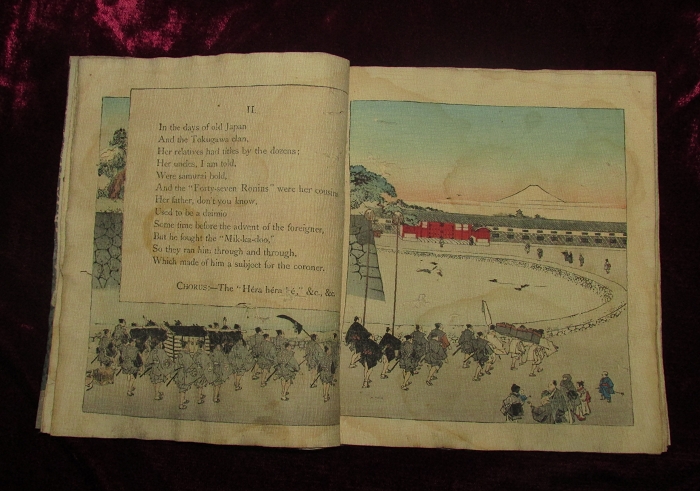 II.
In the days of old Japan
And the Tokugawa clan,
Her relatives had titles by the dozens;
Her uncles, I am told,
Were samurai bold,
And the "Forty-seven Ronins" were her cousins
Her father, don't you know,
Used to be a daimio
Some time before the advent of the foreigner,
But he fought the "Mikoku-doo,"
So they ran him through and through,
Which made of him a subject for the coroner.
CHORUS:—The "Héra héra hé," &c., &c.